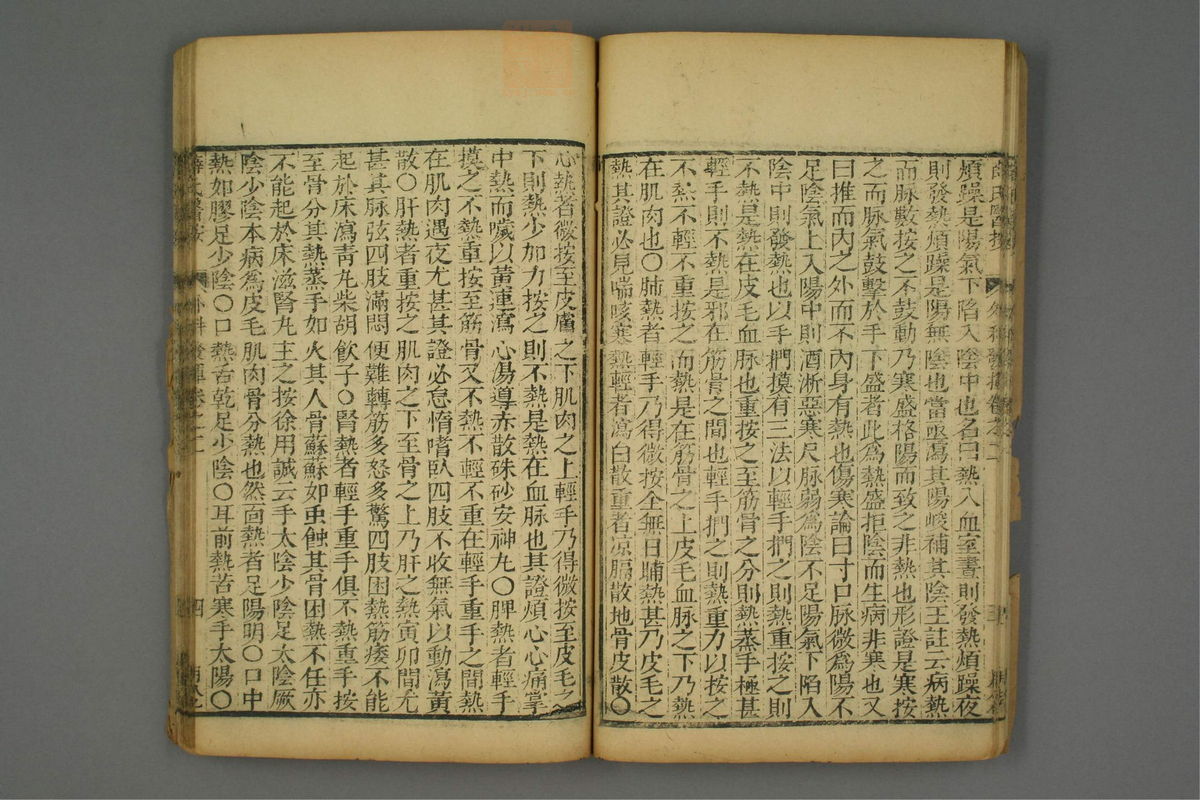 煩躁是陽氣下陷入陰中也名曰熱入血室晝則發熱煩躁夜
則發熱煩躁是陽無陰也當亟瀉其陽峻補其陰王註云病熱
而脉數按之不鼓動乃寒盛格陽而致之非熱也形證是寒按
之而脉氣鼓擊於手下盛者此為熱盛拒陰而生病非寒也又
曰推而內之外而不內身有熱也傷寒論曰寸口脉微為陽不
足陰氣上入陽中則洒淅惡寒尺脉弱為陰不足陽氣下陷入
陰中則發熱也以手捫摸有三法以輕手捫之則熱重按之則
不熱是熱在皮毛血脉也重按之至筋骨之分則熱蒸手極甚
輕手則不熱是邪在筋骨之間也輕手捫之則熱重力以按之
不熱不輕不重按之而熱是在筋骨之上皮毛血脉之下乃熱
在肌肉也〇肺熱者輕手乃得微按全無日晡熱甚乃皮毛之
熱其證必見喘咳寒熱輕者瀉白散重者凉膈散地骨皮散〇
心熱者微按至皮膚之下肌肉之上輕手乃得微按至皮毛之
下則熱少加力按之則不熱是熱在血脉也其證煩心心痛掌
中熱而噦以黃連瀉心湯導赤散硃砂安神丸〇脾熱者輕手
摸之不熱重按至筋骨又不熱不輕不重在輕手重手之間熱
在肌肉遇夜尤甚其證必怠惰嗜臥四肢不收無氣以動瀉黃
散〇肝熱者重按之肌肉之下至骨之上乃肝之熱寅卯間尤
甚其脉弦四肢滿悶便難轉筋多怒多驚四肢困熱筋痿不能
起於床瀉靑丸柴胡飲子〇腎熱者輕手重手俱不熱重手按
至骨分其熱蒸手如火其人骨蘇蘇如虫蝕其骨困熱不任亦
不能起於床滋腎丸主之按徐用誠云手太陰少陰足太陰厥
陰少陰本病為皮毛肌肉骨分熱也然面熱者足陽明〇口中
熱如膠足少陰〇口熱舌乾足少陰〇耳前熱苦寒手太陽〇
四